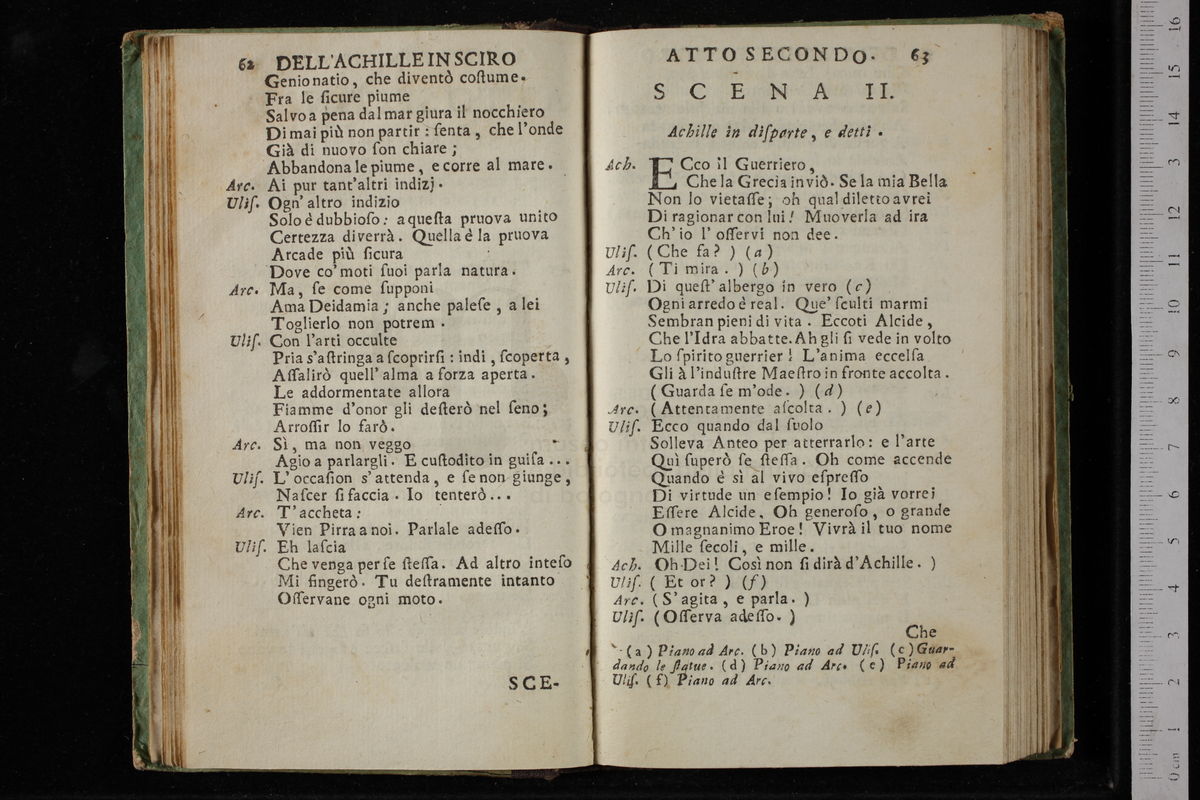 62 DELL'ACHILLE IN SCIRO
Genio natio, che diventò coſtume.
Fra le ſicure piume
Salvo a pena dal mar giura il nocchiero
Di mai più non partir : ſenta, che l'onde
Già di nuovo ſon chiare ;
Abbandona le piume, e corre al mare.
Arc. Ai pur tant'altri indizj.
Uliſ. Ogn' altro indizio
Solo è dubbioſo : a queſta pruova unito
Certezza diverrà. Quella è la pruova
Arcade più ſicura
Dove co' moti ſuoi parla natura.
Arc. Ma, ſe come ſupponi
Ama Deidamia ; anche paleſe, a lei
Toglierlo non potrem.
Uliſ. Con l'arti occulte
Pria s'aſtringa a ſcoprirſi : indi, ſcoperta,
Aſſalirò quell' alma a forza aperta.
Le addormentate allora
Fiamme d'onor gli deſterò nel ſeno ;
Arroſſir lo farò.
Arc. Sì, ma non veggo
Agio a parlargli. E cuſtodito in guiſa ...
Uliſ. L' occaſion s'attenda, e ſe non giunge,
Naſcer ſi faccia. Io tenterò ...
Arc. T' accheta :
Vien Pirra a noi. Parlale adeſſo.
Uliſ. Eh laſcia
Che venga per ſe ſteſſa. Ad altro inteſo
Mi fingerò. Tu deſtramente intanto
Oſſervane ogni moto.
SCE-
ATTO SECONDO. 63
SCENA II.
Achille in diſparte, e detti.
Ach. ECco il Guerriero,
Che la Grecia inviò. Se la mia Bella
Non lo vietaſſe ; oh qual diletto avrei
Di ragionar con lui! Muoverla ad ira
Ch' io l' oſſervi non dee.
Uliſ. (Che fa? ) (a)
Arc. (Ti mira. ) (b)
Uliſ. Di queſt' albergo in vero (c)
Ogni arredo è real. Que' ſculti marmi
Sembran pieni di vita. Eccoti Alcide,
Che l'Idra abbatte. Ah gli ſi vede in volto
Lo ſpirito guerrier! L'anima eccelſa
Gli à l'induſtre Maeſtro in fronte accolta.
(Guarda ſe m'ode. ) (d)
Arc. (Attentamente aſcolta. ) (e)
Uliſ. Ecco quando dal ſuolo
Solleva Anteo per atterrarlo : e l'arte
Quì ſuperò ſe ſteſſa. Oh come accende
Quando è sì al vivo eſpreſſo
Di virtude un eſempio! Io già vorrei
Eſſere Alcide. Oh generoſo, o grande
O magnanimo Eroe! Vivrà il tuo nome
Mille ſecoli, e mille.
Ach. Oh Dei! Così non ſi dirà d'Achille. )
Uliſ. ( Et or? ) (f)
Arc. (S'agita, e parla. )
Uliſ. (Oſſerva adeſſo. )
Che
(a) Piano ad Arc. (b) Piano ad Uliſ. (c) Guar-
dando le ſtatue. (d) Piano ad Arc. (e) Piano ad
Uliſ. (f) Piano ad Arc.